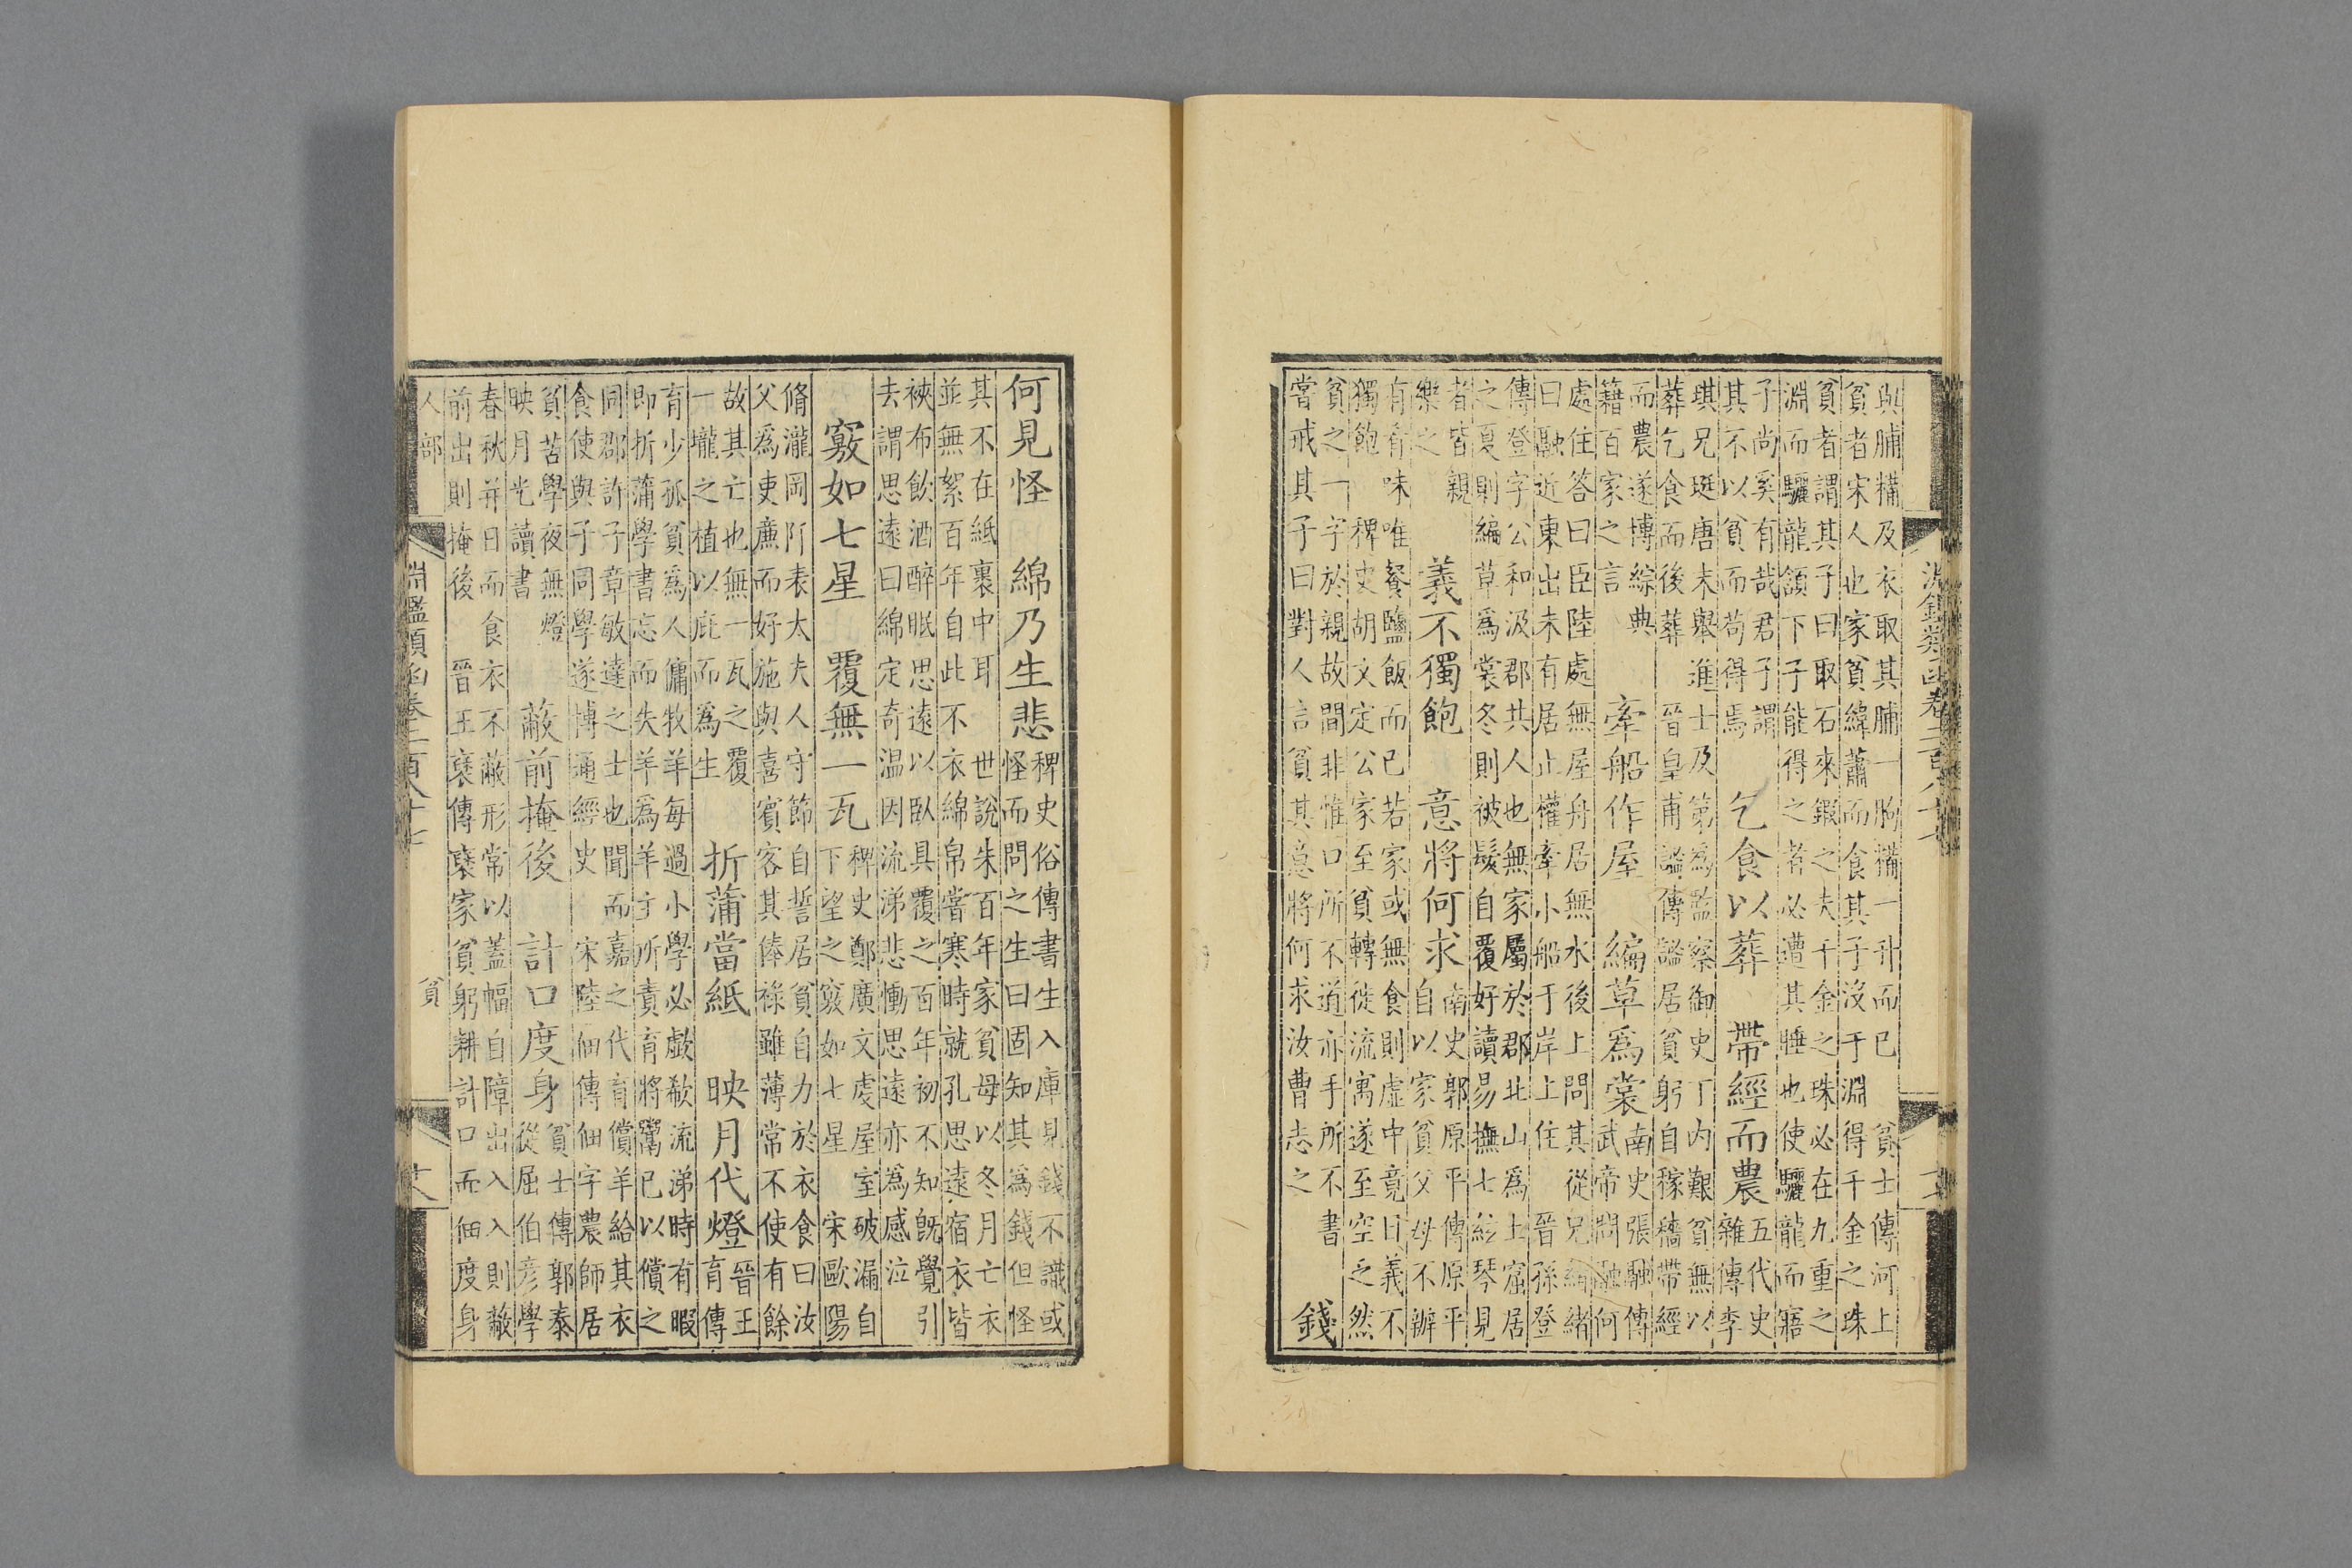 淵鑑類函卷二百八十七
與脯糒及衣取其脯一朐糒一升而已 貧士傳河上
貧者宋人也家貧緯蕭而食其子沒于淵得千金之珠
貧者謂其子曰取石來鍜之夫千金之珠必在九重之
淵而驪龍頷下子能得之者必遭其睡也使驪龍而寤
子尚奚有哉君子謂
其不以貧而苟得焉
乞食以葬 帶經而農
五代史
雜傳李
琪兄珽唐末舉進士及第為監察御史丁內艱貧無以
葬乞食而後葬 晉皇甫謐傳謐居貧躬自稼穡帶經
而農遂博綜典
籍百家之言
牽船作屋 編草爲裳
南史張融傳
武帝問融何
處住答曰臣陸處無屋舟居無水後上問其從兄緒緒
曰融近東出未有居止權牽小船于岸上住 晉孫登
傳登字公和汲郡共人也無家屬於郡北山爲土窟居
之夏則編草爲裳冬則被髮自覆好讀易撫七絃琴見
者皆親
樂之
義不獨飽 意將何求
南史郭原平傳原平
自以家貧父母不辦
有肴味唯餐鹽飯而已若家或無食則虛中竟日義不
獨飽 稗史胡文定公家至貧轉徙流寓遂至空乏然
貧之一字於親故間非惟口所不道亦手所不書
嘗戒其子曰對人言貧其意將何求汝曹志之
錢
何見怪 綿乃生悲
稗史俗傳書生入庫見錢不識或
怪而問之生曰固知其爲錢但怪
其不在紙裏中耳 世說朱百年家貧母以冬月亡衣
並無絮百年自此不衣綿帛嘗寒時就孔思遠宿衣皆
裌布飲酒醉眠思遠以臥具覆之百年初不知旣覺引
去謂思遠曰綿定奇温因流涕悲慟思遠亦爲感泣
竅如七星 覆無一瓦
稗史鄭廣文虔屋室破漏自
下望之竅如七星 宋歐陽
脩瀧岡阡表太夫人守節自誓居貧自力於衣食曰汝
父爲吏廉而好施與喜賓客其俸祿雖薄常不使有餘
故其亡也無一瓦之覆
一壠之植以庇而爲生
折蒲當紙 映月代燈
晉王
育傳
育少孤貧爲人傭牧羊每過小學必歔欷流涕時有暇
即折蒲學書忘而失羊爲羊主所責育將鬻已以償之
同郡許子章敏達之士也聞而嘉之代育償羊給其衣
食使與子同學遂博通經史 宋陸佃傳佃字農師居
貧苦學夜無燈
映月光讀書
蔽前掩後 計口度身
貧士傳郭泰
從屈伯彦學
春秋并日而食衣不蔽形常以蓋幅自障出入入則蔽
前出則掩後 晉王裒傳裒家貧躬耕計口而佃度身
人部
淵鑑類函卷二百八十七 貧 十八